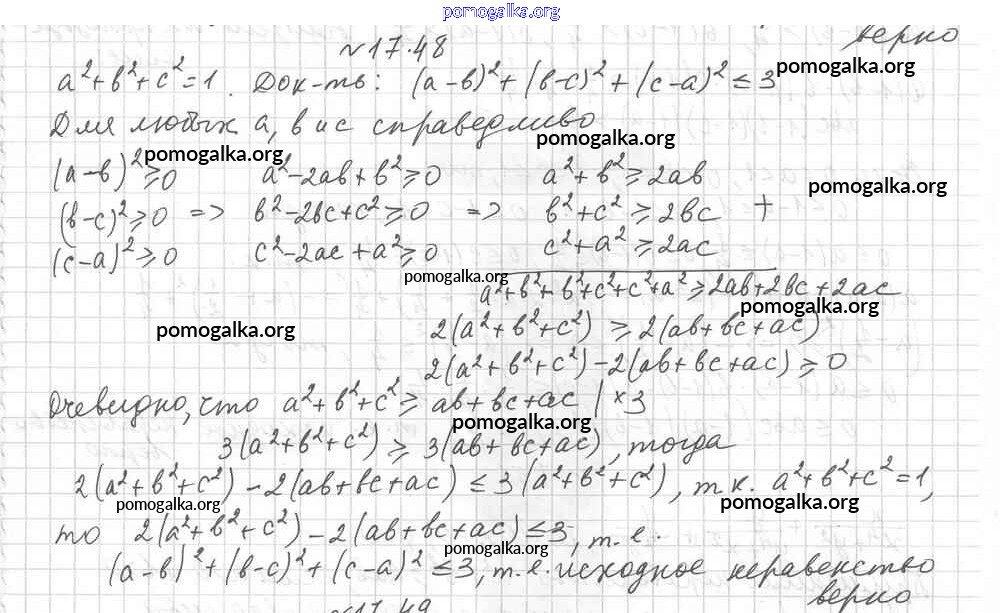 pomogalka.org
верно
№17.48
a²+b²+c²=1. Док-ть: (a-b)²+(b-c)²+(c-a)² ≤ 3
pomogalka.org
Для любых a, b и c справедливо
pomogalka.org
pomogalka.org
(a-b)²≥0 a²-2ab+b²≥0 a²+b²≥2ab
pomogalka.org
(b-c)²≥0 => b²-2bc+c²≥0 => b²+c²≥2bc +
(c-a)²≥0 c²-2ac+a²≥0 c²+a²≥2ac
pomogalka.org
a²+b²+b²+c²+c²+a²≥2ab+2bc+2ac
pomogalka.org
pomogalka.org
2(a²+b²+c²) ≥ 2(ab+bc+ac)
2(a²+b²+c²)-2(ab+bc+ac) ≥ 0
Очевидно, что a²+b²+c² ≥ ab+bc+ac |×3
pomogalka.org
3(a²+b²+c²) ≥ 3(ab+bc+ac), тогда
2(a²+b²+c²)-2(ab+bc+ac) ≤ 3(a²+b²+c²), т.к. a²+b²+c²=1,
pomogalka.org
pomogalka.org
то 2(a²+b²+c²)-2(ab+bc+ac) ≤ 3, т.е.
pomogalka.org
(a-b)²+(b-c)²+(c-a)² ≤ 3, т.е. исходное неравенство
верно
№17.49